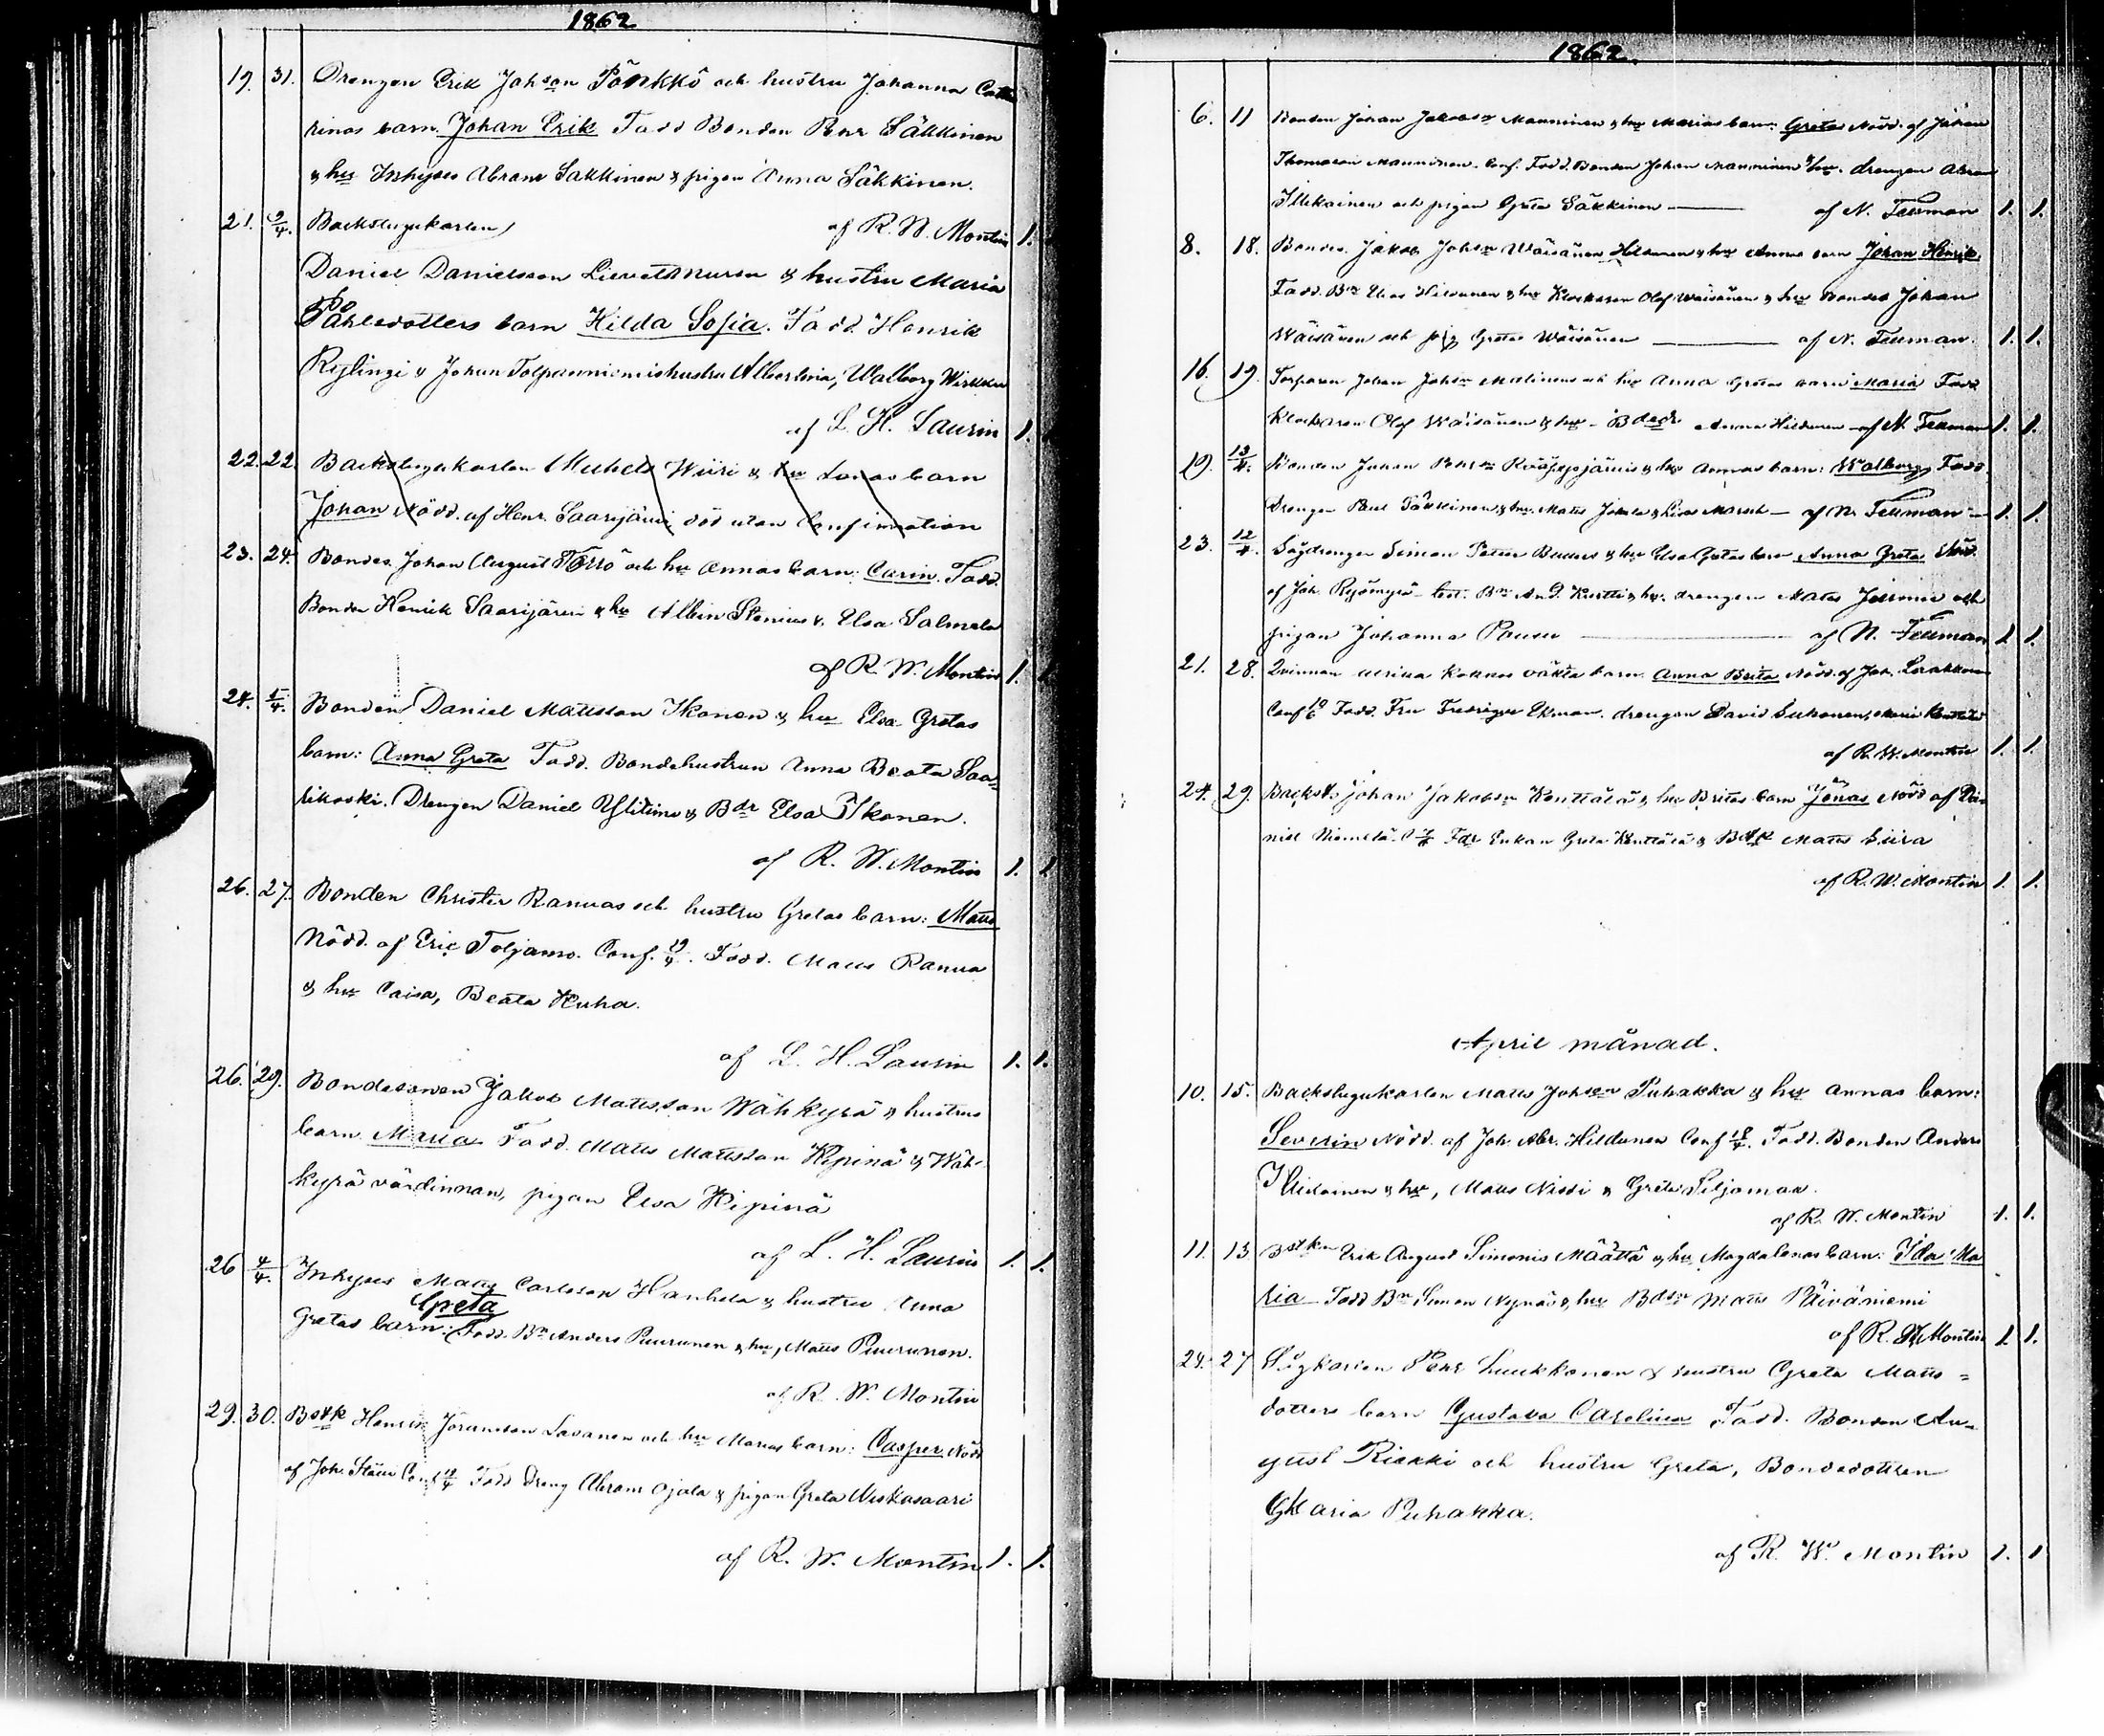 1862
19. 31. Drengen Erik Johson Pönkkö och hustru Johanna Catha
rinas barn. Johan Erik Fadd Bonden Pehr Säkkinen
& hu Inhyses Abram Säkkinen & pigan Anna Säkkinen.
21. 2/4. Backstugukarlen af R. W. Montin 1.
Daniel Danielsson & hustru Maria
Påhlsdotters barn Hilda Sofia. Fadd Henrik
& Johan hustru Albertina, Walborg
af L. H. Laurin 1.
22. 22. Backstugukarlen Michels Wiiri & hu barn
Johan Nödd. af Henr. Saarijärvi död utan Confirmation
23. 24. Bonden Johan August och hu Annas barn: Carin. Fadd.
Bonden Henrik Saarijärvi & hu Albin Stenius & Elsa Salmela
af R. W. Montin 1. 1
24. 1/4. Bonden Daniel Mattsson Ikonen & hu Elsa Gretas
barn: Anna Greta Fadd. Bondehustrun Anna Beata Saa=
rikoski. Drengen Daniel Ylitimo & Bdr Elsa Ikonen.
af R. W. Montin 1. 1
26. 27. Bonden Christer Ranuas och hustru Gretas barn: Matts
Nödd. af Eric Toljamo. Conf. 19/4. Fadd. Matts Ranua
& hu Caisa, Beata Kuha.
af L. H. Laurin 1. 1.
26. 29. Bondesonen Jakob Mattsson Wähkyrä & hustrus
barn Maria Fadd. Matts Mattsson Hipinä & Wäh-
kyrä värdinnan, pigan Elsa Hipinä
af L. H. Laurin 1. 1.
26 4/4. Inhyses Mats Carlsson Hanhela & hustru Anna
Greta
Gretas barn: Fadd. Bn Anders Puurunen & hu, Matts Puurunen.
af R. W. Montin
29. 30. Bstk Henrik Göransson Lasanen och hu Marias barn: Casper Nödd
af Joh. Conf Fadd Dreng Abram Ojala & pigan Greta Niskasaari
af R. W. Montin 1. 1.
1862.
6. 11 Bonden Johan Jakobsn Manninen & hu Marias barn: Greta Nödd. af Johan
Thomasson Manninen. Conf. Fadd. Bonden Johan Manninen & hu. drengen Abra
Illikainen och pigan Greta Säkkinen — af N. Fellman 1. 1.
8. 18. Bonden Jakob Johsn Wäisänen Hildunen & hu Annas barn Johan Henrik
Fadd. Bn Elias Hildunen & hu Klockaren Olof Wäisänen & hu Bonden Johan
Wäisänen och pig Greta Wäisänen — af N. Fellman. 1. 1.
16. 19. Torparen Johan Johsn Malinens och hu Anna Gretas barn Maria Fadd
Klockaren Olof Wäisänen & hu - Bdedr Anna Hildunen — af N. Fellman 1. 1.
19. 13/4. Bonden Johan Pehrsn & hu Annas barn: Walborg Fadd.
Drengen Paul Säkkinen & hu. Matts & Lisa — af N. Fellman — 1. 1.
23. 12/4. Sågdrengen Simon Petter & hu Elsa Gretas barn Anna Greta Nöd.
af Joh. test. Bn And. Kurtti & hu. drengen Matts och
pigan Johanna — af N. Fellman 1. 1.
21. 28. Qvinnan Ulrika oäkta barn Anna Brita Nödd. af Joh.
Conf Fadd. Fru Fredrique Ekman. drengen David Suhonen,
af R. W. Montin 1. 1.
24. 29. Backst. Johan Jakobsn Kenttälä & hu Britas barn Jonas Nödd af Da
niel Niemelä. Enkan Greta Kenttälä & Bstk Matts Siira
af R. W. Montin 1. 1.
April månad.
10. 15. Backstugukarlen Matts Johsson Puhakka & hu Annas barn:
Severin Nödd. af Joh. Abr. Hildunen Conf 18/4. Fadd. Bonden Anders
Illikainen & hu, Matts Nissi & Greta Siljamaa.
af R. W. Montin 1. 1.
11. 13 Bstkn Erik August Simonis Määttä & hu Magdalenas barn: Ida Ma
ria Fadd Bn Simon & hu Bdesn Matts Päiväniemi
af R. W. Montin 1. 1.
24. 27 Sågkarlen Pehr Luukkonen & hustru Greta Matts=
dotters barn Gustava Carolina Fadd. Bonden Au=
gust Risakki och hustru Greta, Bondedottren
Maria Puhakka.
af R. W. Montin 1. 1